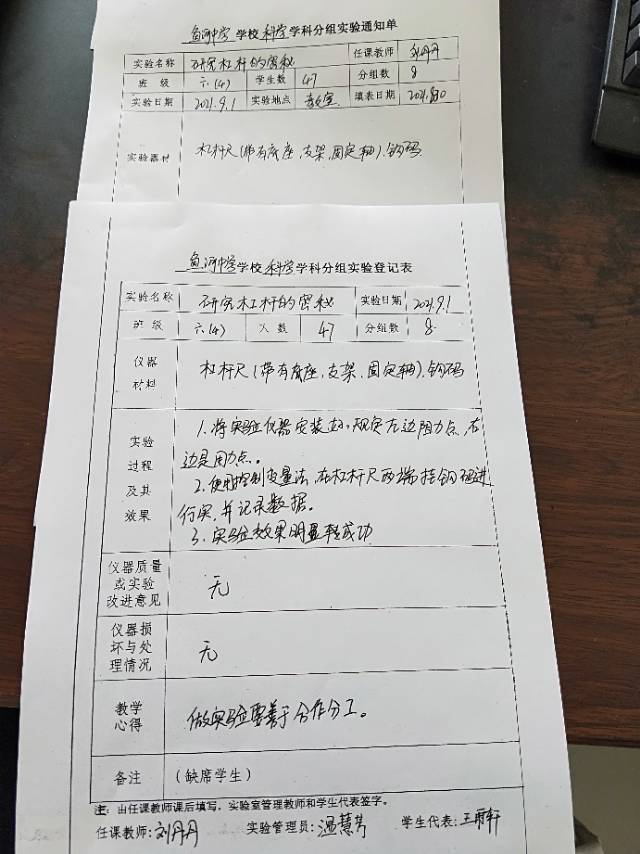 鱼河中学学校科学学科分组实验通知单
实验名称 研究杠杆的密秘 任课教师 刘丹丹
班级 六(4) 学生数 47 分组数 8
实验日期 2021.9.1 实验地点 教室 填表日期
实验器材 杠杆尺(带有底座,支架,固定轴),钩码
鱼河中学学校科学学科分组实验登记表
实验名称 研究杠杆的密秘 实验日期 2021.9.1
班级 六(4) 人数 47 分组数 8
仪器
材料
杠杆尺(带有底座、支架、固定轴),钩码
实验
过程
及其
效果
1.将实验仪器安装好,规定左边阻力点,右
边是用力点。
2.使用控制变量法,在杠杆尺两端挂钩码进
行实,并记录数据。
3.实验效果明显较成功
仪器质量
或实验
改进意见
无
仪器损
坏与处
理情况
无
教学
心得
做实验要善于合作分工。
备注 (缺席学生)
注:由任课教师课后填写,实验室管理教师和学生代表签字。
任课教师:刘丹丹 实验管理员:温慧芳 学生代表:王雨轩